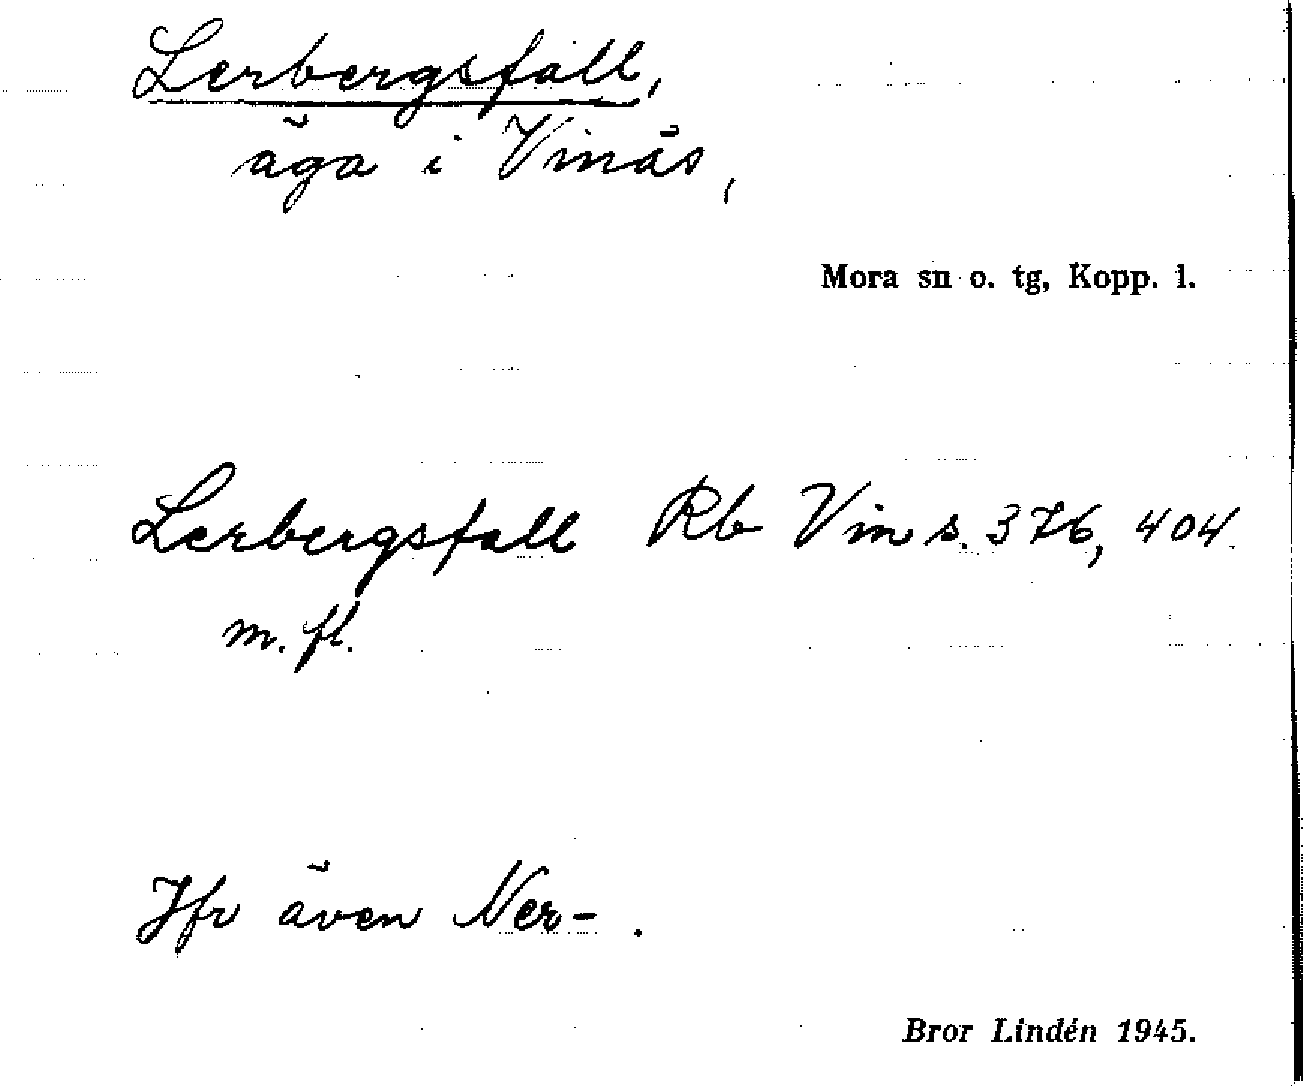 Lerbergsfall,
äga i Vinäs,
Mora sn o. tg, Kopp. l.
Lerbergsfall Rb Vin s. 376, 404
m. fl.
Jfr även Ner- .
Bror Lindén 1945.